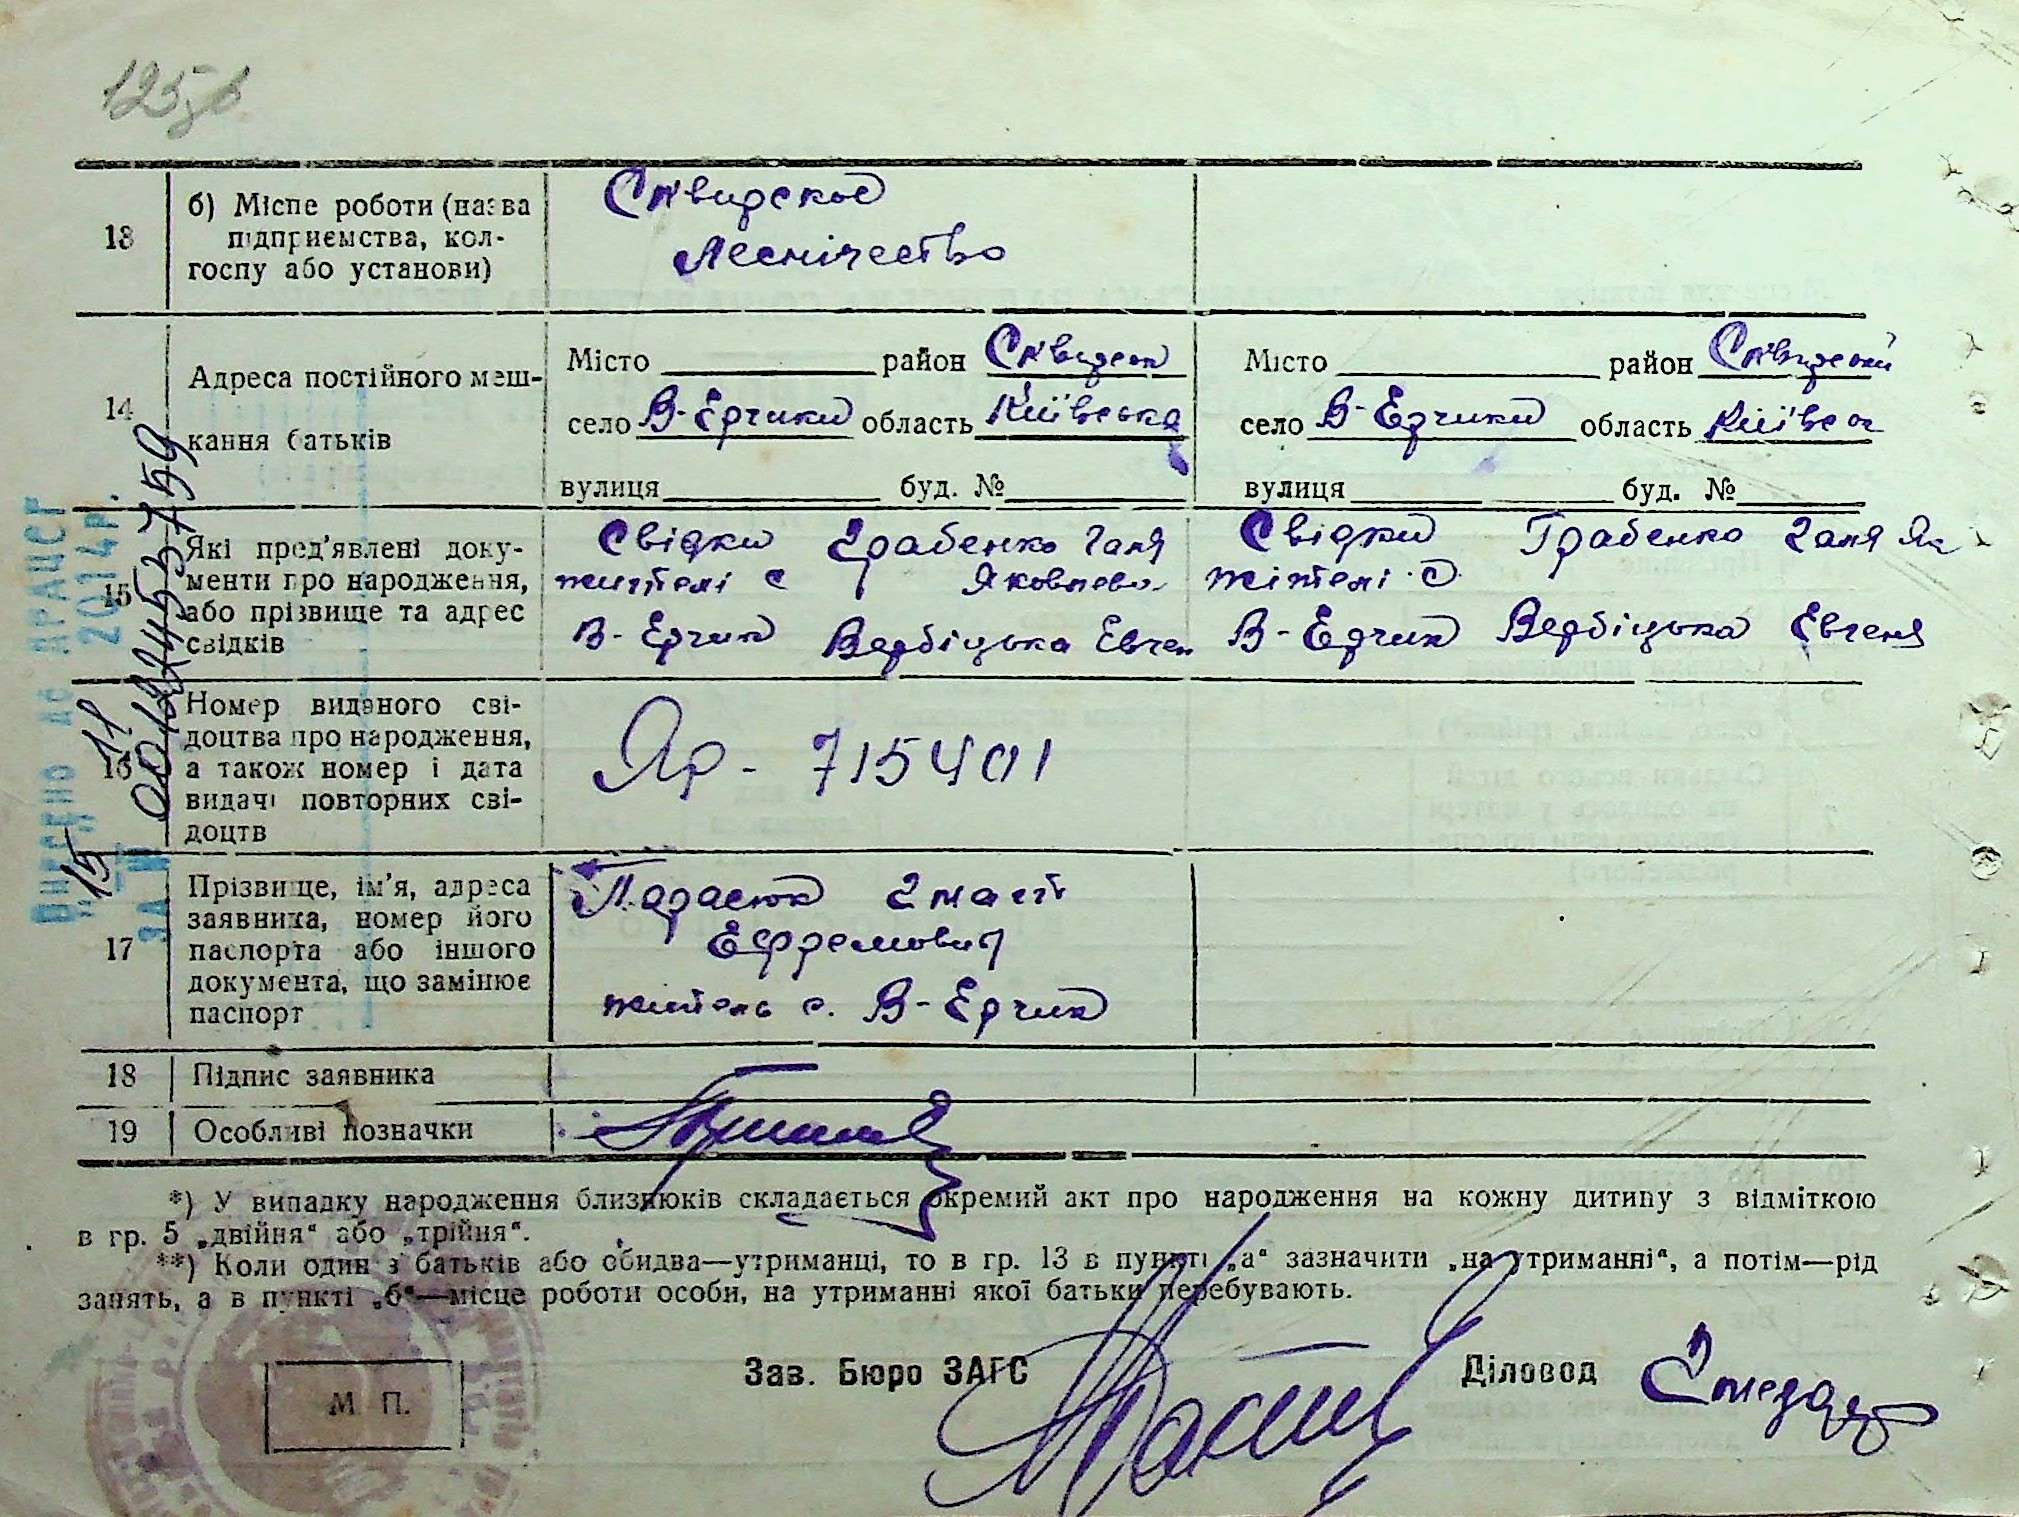 125зв
13
б) Місце роботи (назва
підприємства, кол-
госпу або установи)
Сквирское
Леснічество
14
Адреса постійного меш-
кання батьків
Місто район Сквирск
село В-Ерчики область Київська
вулиця буд. №
Місто район Сквирский
село В-Ерчики область Київск
вулиця буд. №
15
Які пред'явлені доку-
менти про народження,
або прізвище та адрес
свідків
Свідки Грабенко Галя
жителі с Яковлевн
В-Ерчик Вербіцька Евген
Свідки Грабенко Галя Як
жітелі с
В-Ерчик Вербіцька Евгеня
16
Номер виданого сві-
доцтва про народження,
а також номер і дата
видачі повторних сві-
доцтв
Яр- 715401
17
Прізвище, ім'я, адреса
заявника, номер його
паспорта або іншого
документа, що замінює
паспорт
Парасюк Гнат
Ефремович
житель с. В-Ерчик
18
Підпис заявника
19
Особливі позначки
*) У випадку народження близнюків складається окремий акт про народження на кожну дитину з відміткою
в гр. 5 „двійня“ або „трійня“.
**) Коли один з батьків або обидва—утриманці, то в гр. 13 в пункті „а“ зазначити „на утриманні“, а потім—рід
занять, а в пункті „б“—місце роботи особи, на утриманні якої батьки перебувають.
М П.
Зав. Бюро ЗАГС
Діловод
Внесено до ДРАЦСГ
"15" 11 2014р.
за №